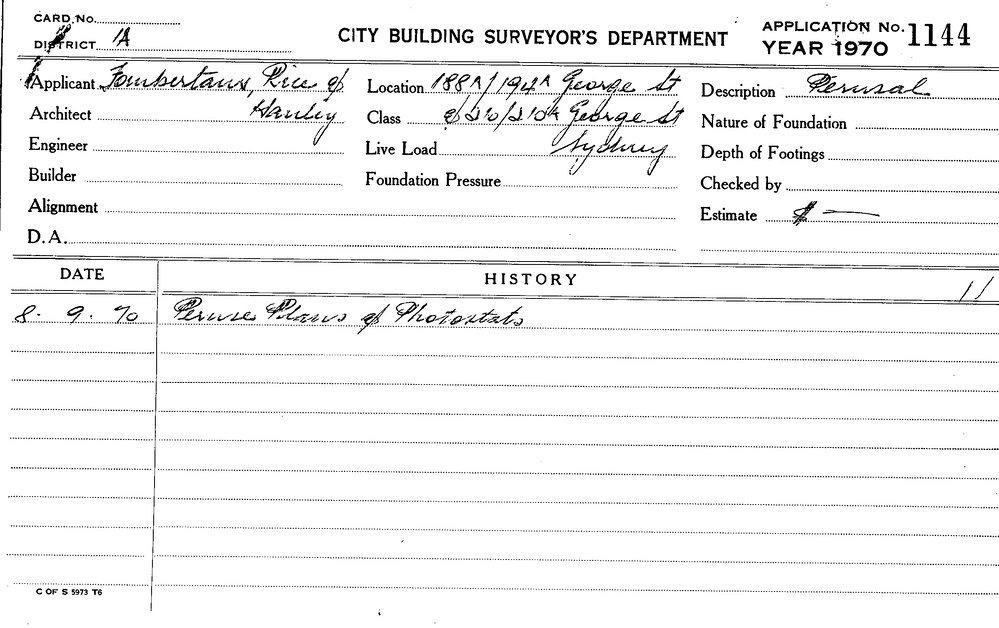 CARD No.
DISTRICT 1A
CITY BUILDING SURVEYOR'S DEPARTMENT
APPLICATION No. 1144
YEAR 1970
Applicant Rice &
Hanley
Architect
Engineer
Builder
Alignment
D.A.
Location 188A/194A George St
Class & 210/210A George St
Live Load Sydney
Foundation Pressure
Description Perusal
Nature of Foundation
Depth of Footings
Checked by
Estimate $ —
DATE HISTORY
11
8. 9. 70 Peruse Plans & Photostats
C OF S 5973 T6